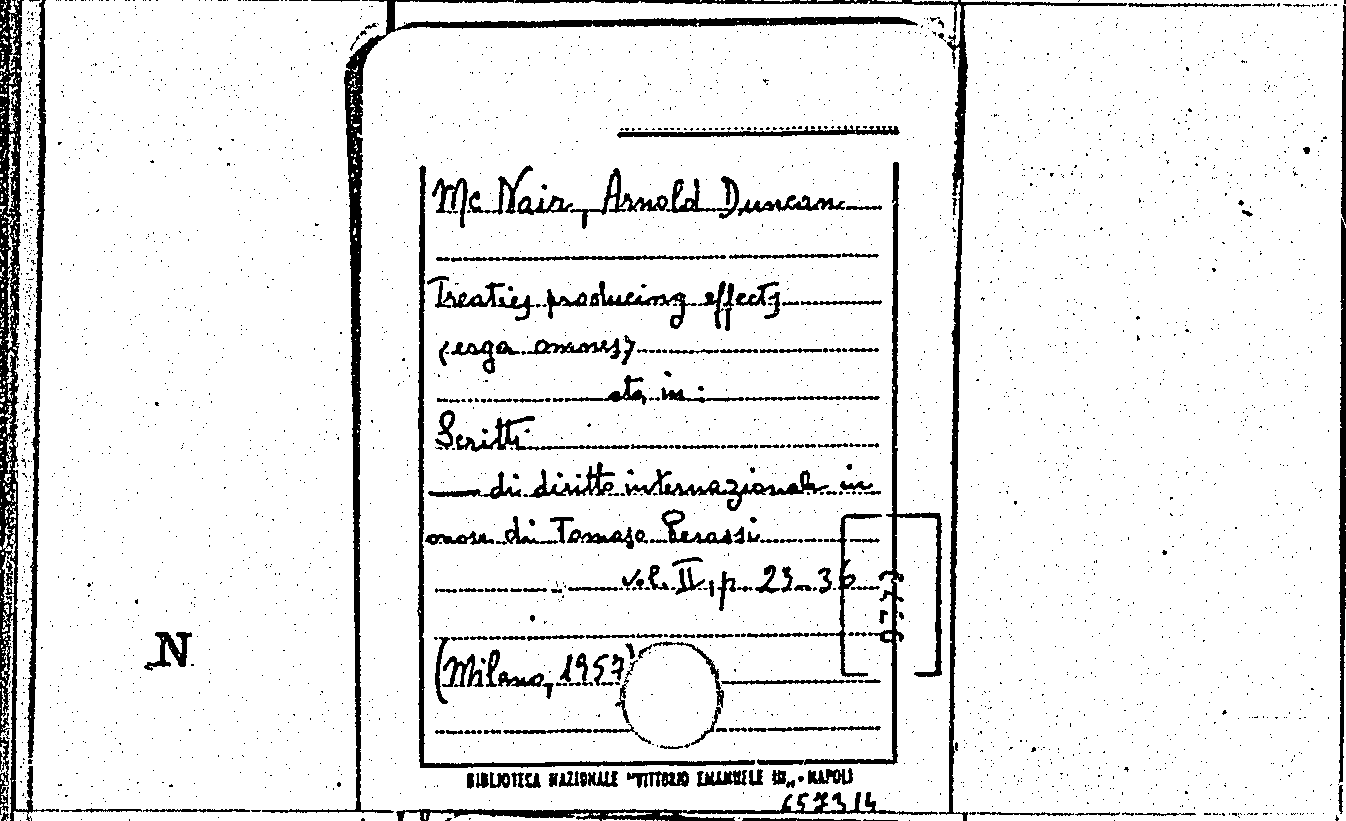 Mc Nair, Arnold Duncan
Treaties producing effects
<erga omnes>
sta in:
Scritti
— di diritto internazionale in
onore di Tomaso Perassi
vol. II, p. 23-36
(Milano, 1957)
N
BIBLIOTECA NAZIONALE "VITTORIO EMANUELE III" - NAPOLI